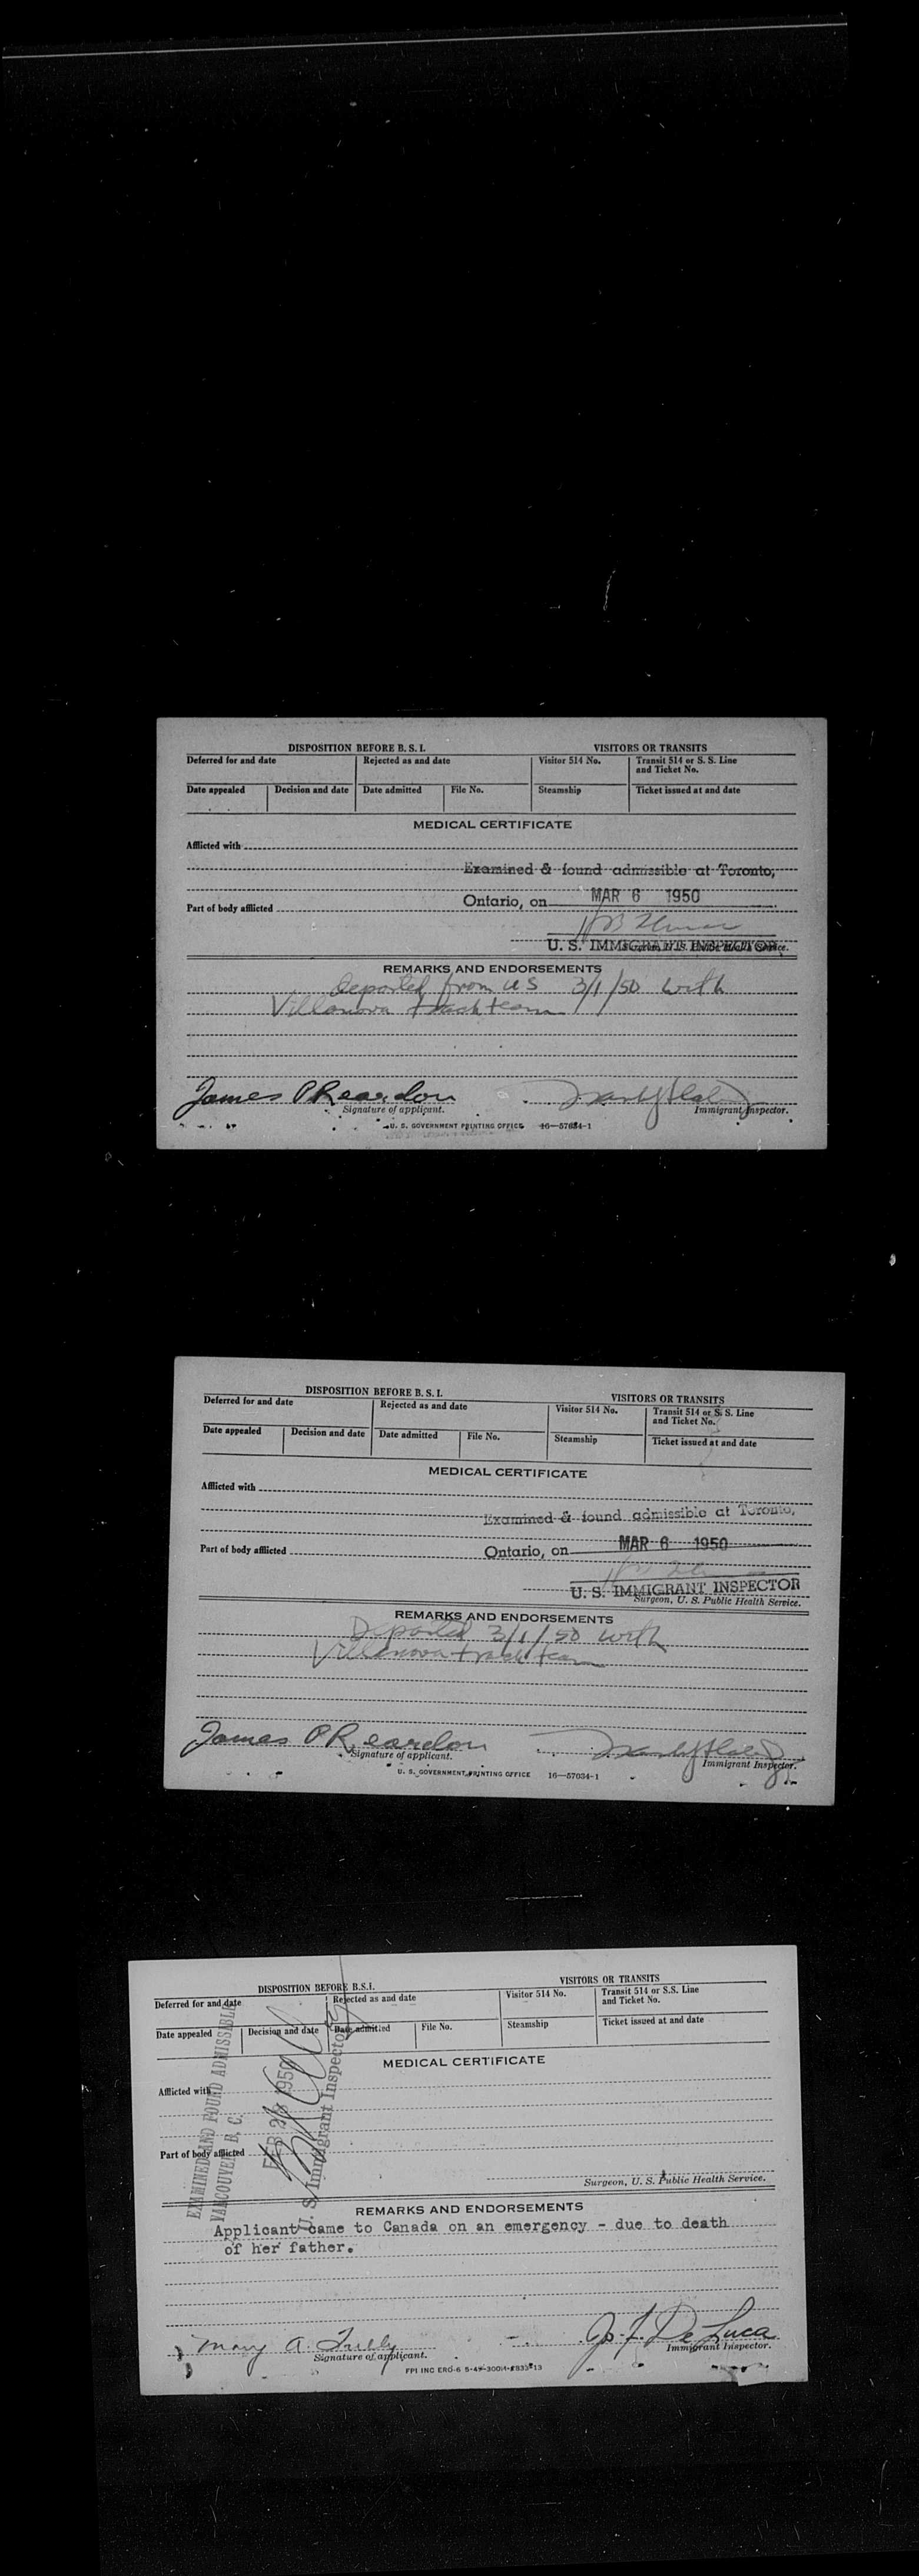 DISPOSITION BEFORE B. S. I. VISITORS OR TRANSITS
Deferred for and date Rejected as and date Visitor 514 No. Transit 514 or S. S. Line and Ticket No.
Date appealed Decision and date Date admitted File No. Steamship Ticket issued at and date
MEDICAL CERTIFICATE
Afflicted with
Examined & found admissible at Toronto,
Ontario, on MAR 6 1950
Part of body afflicted
U. S. IMMIGRANT INSPECTOR
Surgeon, U. S. Public Health Service.
REMARKS AND ENDORSEMENTS
Departed from US 3/1/50 with
Villanova track team
James P Reardon
Signature of applicant. Immigrant Inspector.
U. S. GOVERNMENT PRINTING OFFICE 16—57634-1
DISPOSITION BEFORE B. S. I. VISITORS OR TRANSITS
Deferred for and date Rejected as and date Visitor 514 No. Transit 514 or S. S. Line and Ticket No.
Date appealed Decision and date Date admitted File No. Steamship Ticket issued at and date
MEDICAL CERTIFICATE
Afflicted with
Examined & found admissible at Toronto,
Part of body afflicted Ontario, on MAR 6 1950
U. S. IMMIGRANT INSPECTOR
Surgeon, U. S. Public Health Service.
REMARKS AND ENDORSEMENTS
Departed 3/1/50 with
Villanova track team
James P Reardon
Signature of applicant. Immigrant Inspector.
U. S. GOVERNMENT PRINTING OFFICE 16—57634-1
DISPOSITION BEFORE B.S.I. VISITORS OR TRANSITS
Deferred for and date Rejected as and date Visitor 514 No. Transit 514 or S.S. Line and Ticket No.
Date appealed Decision and date Date admitted File No. Steamship Ticket issued at and date
MEDICAL CERTIFICATE
Afflicted with
Part of body afflicted
EXAMINED AND FOUND ADMISSIBLE
VANCOUVER, B. C.
FEB 1950
U. S. Immigrant Inspector
Surgeon, U. S. Public Health Service.
REMARKS AND ENDORSEMENTS
Applicant came to Canada on an emergency - due to death
of her father.
Mary A. Jo. F. De Luca
Signature of applicant. Immigrant Inspector.
FPI INC ERO-6 5-49-300M